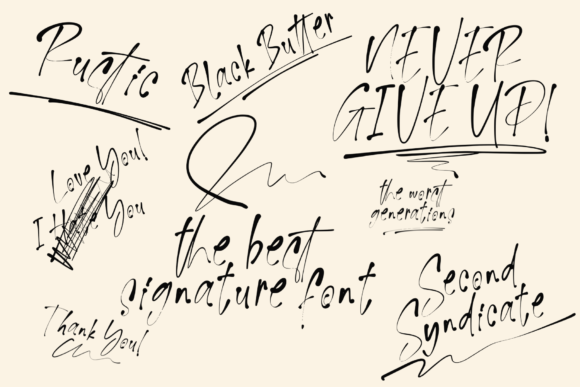 Rustic
Black Butter
NEVER
GIVE UP!
Love You!
I Hate You
the worst
generations
the best
signature font
Thank You!
Second
Syndicate